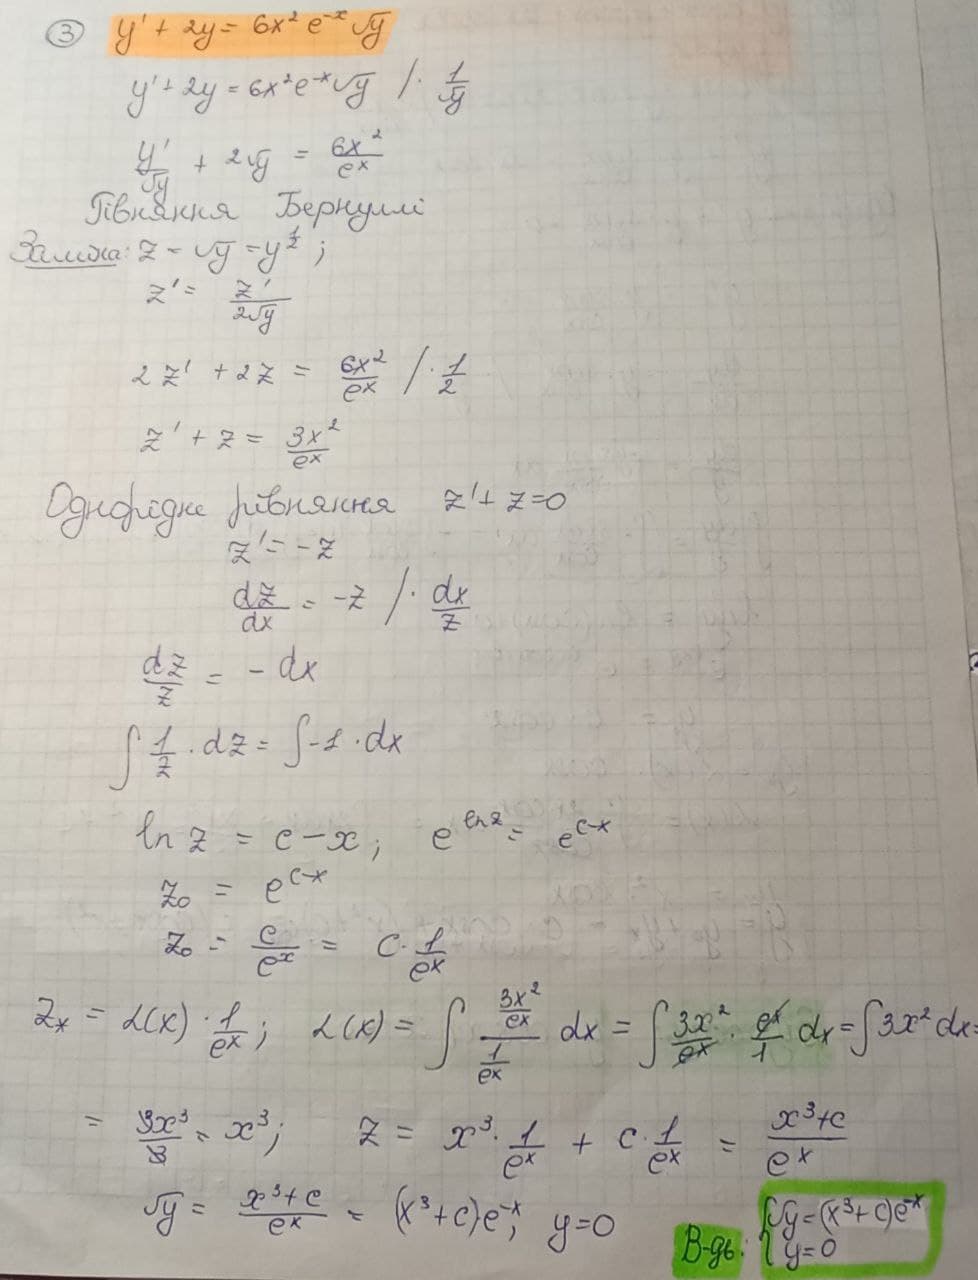 ③ y' + 2y = 6x² e⁻ˣ √y
y' + 2y = 6x² e⁻ˣ √y / · 1/√y
y'/√y + 2√y = 6x²/eˣ
Рівняння Бернуллі
Заміна: z = √y = y^(1/2) ;
z' = z'/(2√y)
2z' + 2z = 6x²/eˣ / · 1/2
z' + z = 3x²/eˣ
Однорідне рівняння z' + z = 0
z' = -z
dz/dx = -z / · dx/z
dz/z = - dx
∫ 1/z · dz = ∫ -1 · dx
ln z = c - x ; e^(ln z) = e^(c-x)
z₀ = e^(c-x)
z₀ = c/eˣ = c · 1/eˣ
z* = α(x) · 1/eˣ ; α(x) = ∫ (3x²/eˣ)/(1/eˣ) dx = ∫ 3x²/eˣ · eˣ/1 dx = ∫ 3x² dx =
= 3x³/3 = x³ ; z = x³ · 1/eˣ + c · 1/eˣ = (x³+c)/eˣ
√y = (x³+c)/eˣ = (x³+c)e⁻ˣ ; y=0
В-дь: { √y = (x³+c)e⁻ˣ
y=0